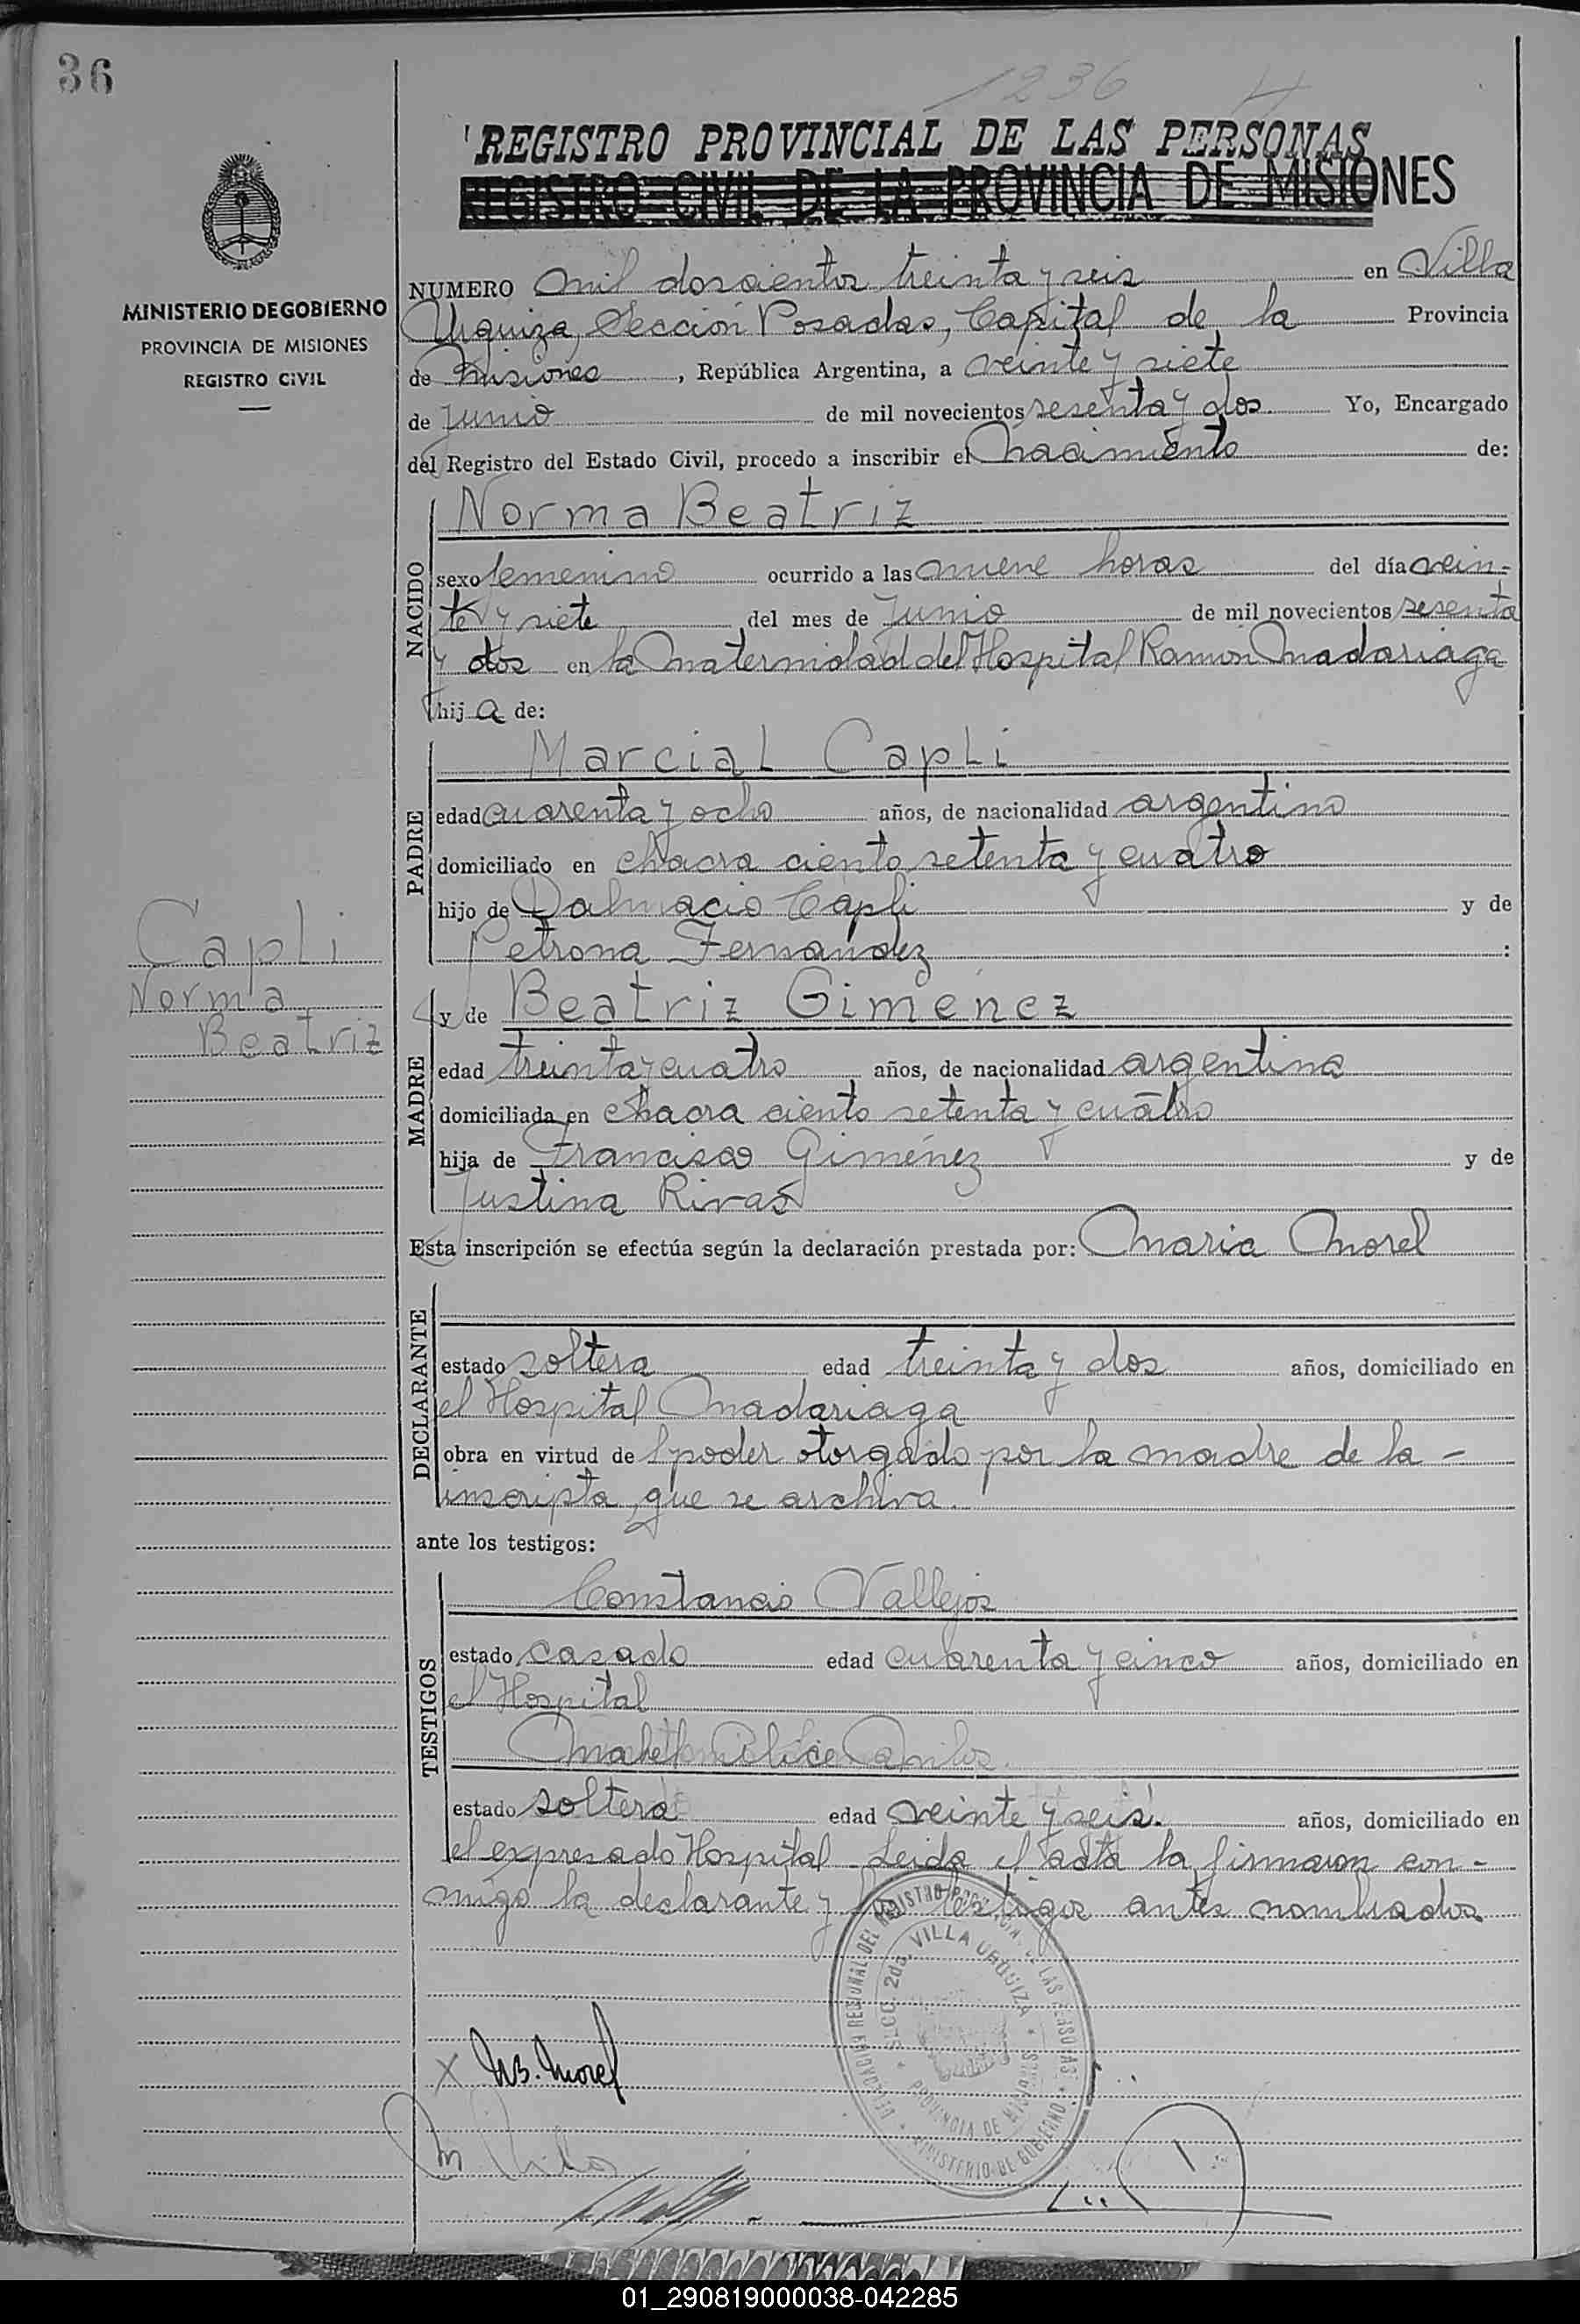 36
1236
REGISTRO PROVINCIAL DE LAS PERSONAS
REGISTRO CIVIL DE LA PROVINCIA DE MISIONES
MINISTERIO DE GOBIERNO
PROVINCIA DE MISIONES
REGISTRO CIVIL
NUMERO mil doscientos treinta y seis en Villa
Urquiza, Sección Posadas, Capital de la Provincia
de Misiones, República Argentina, a veinte y siete
de Junio de mil novecientos sesenta y dos. Yo, Encargado
del Registro del Estado Civil, procedo a inscribir el Nacimiento de:
NACIDO
Norma Beatriz
sexo femenino ocurrido a las nueve horas del día vein-
te y siete del mes de Junio de mil novecientos sesenta
y dos en la Maternidad del Hospital Ramon Madariaga
hija de:
PADRE
Marcial Capli
edad cuarenta y ocho años, de nacionalidad argentino
domiciliado en chacra ciento setenta y cuatro
hijo de Dalmacio Capli y de
Petrona Fernandez :
Capli
Norma
Beatriz
MADRE
y de Beatriz Gimenez
edad treinta y cuatro años, de nacionalidad argentina
domiciliada en chacra ciento setenta y cuatro
hija de Francisco Giménez y de
Justina Rivas
Esta inscripción se efectúa según la declaración prestada por: Maria Morel
DECLARANTE
estado soltera edad treinta y dos años, domiciliado en
el Hospital Madariaga
obra en virtud de l poder otorgado por la madre de la -
inscripta, que se archiva.
ante los testigos:
TESTIGOS
Constancio Vallejos
estado casado edad cuarenta y cinco años, domiciliado en
el Hospital
Mabel Alice
estado soltera edad veinte y seis. años, domiciliado en
el expresado Hospital. Leida el acta la firmaron con-
migo la declarante y los testigos antes nombrados.
DELEGACION REGIONAL DEL REGISTRO PROVINCIAL DE LAS PERSONAS
SECC. 2da. VILLA URQUIZA
PROVINCIA DE MISIONES
MINISTERIO DE GOBIERNO
X M B. Morel
01_290819000038-042285